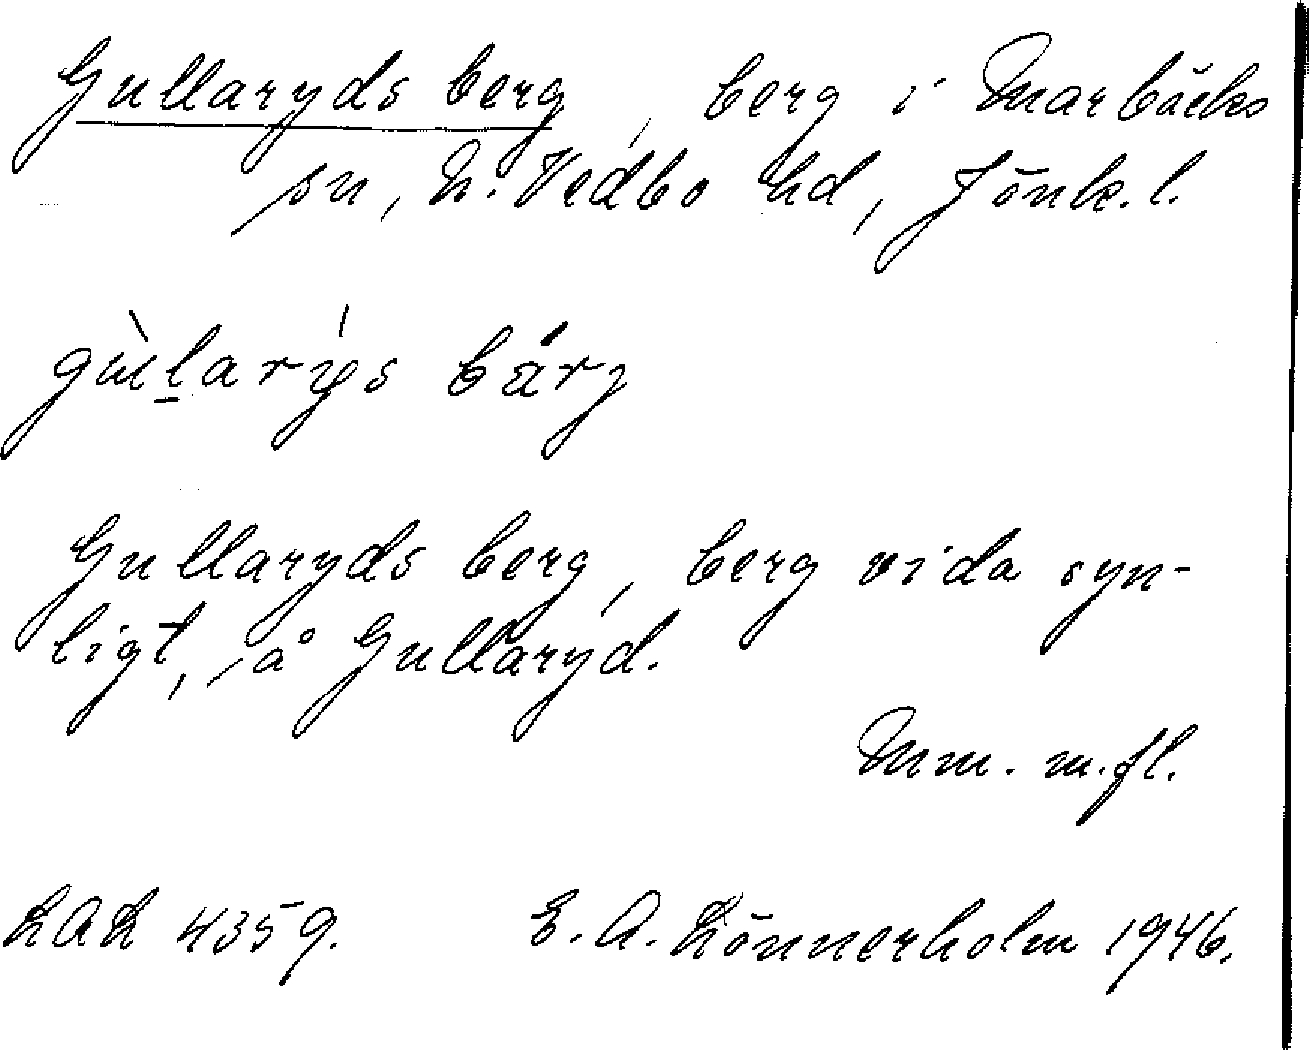 Gullaryds berg, berg i Marbäcks
sn, N. Vedbo hd, Jönk. l.
gùlarýs bárj
Gullaryds berg, berg vida syn-
ligt, å Gullaryd.
Mm. m.fl.
LAL 4359. E. A. Lönnerholm 1946.